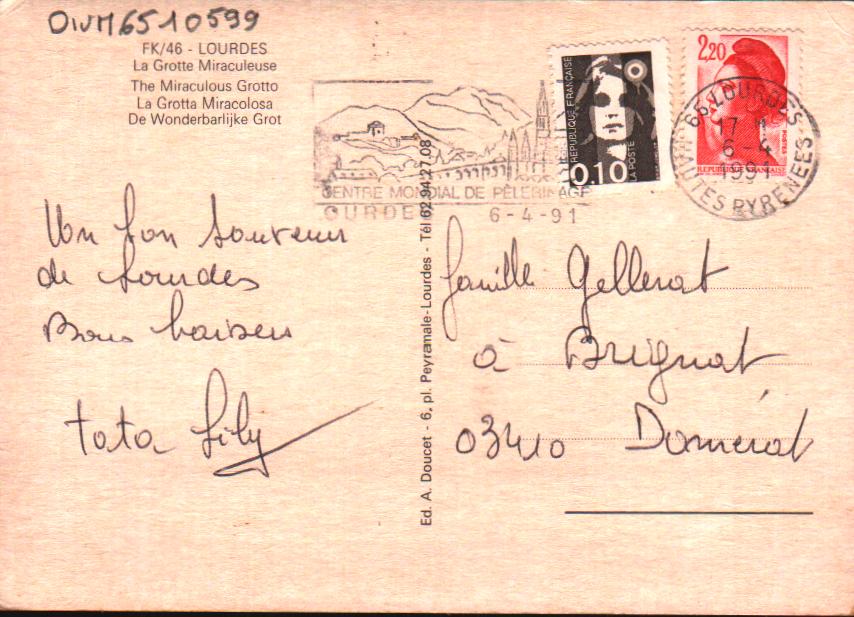 OIVM6510599
FK/46 - LOURDES
La Grotte Miraculeuse
The Miraculous Grotto
La Grotta Miracolosa
De Wonderbarlijke Grot
CENTRE MONDIAL DE PÈLERINAGE
OURDES
6-4-91
REPUBLIQUE FRANÇAISE
LA POSTE
0,10
2,20
POSTES
REPUBLIQUE FRANÇAISE
65 LOURDES
17 H
6-4
1991
HAUTES PYRENEES
Un bon souvenir
de Lourdes
Bons baisers
tata Lily
Ed. A. Doucet - 6, pl. Peyramale-Lourdes - Tél 62.94.27.08
famille Gellerat
à Brignat
03410 Domérat